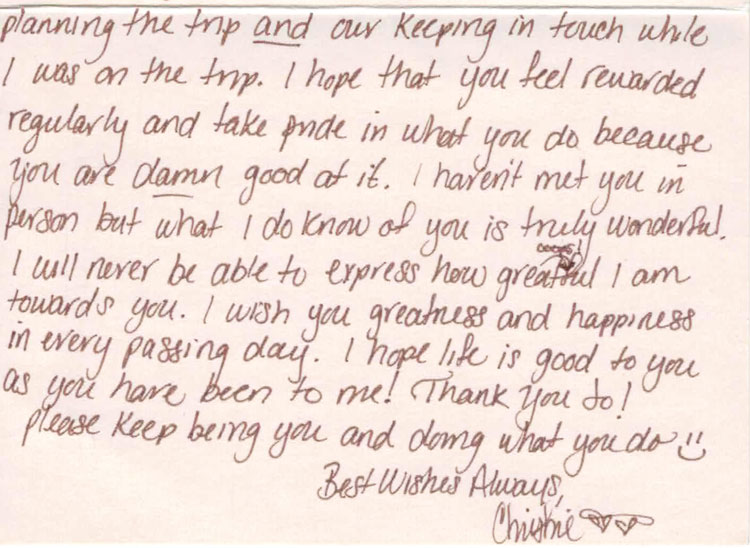 planning the trip and our keeping in touch while
I was on the trip. I hope that you feel rewarded
regularly and take pride in what you do because
you are damn good at it. I haven't met you in
person but what I do know of you is truly wonderful.
I will never be able to express how greatful I am
towards you. I wish you greatness and happiness
in every passing day. I hope life is good to you
as you have been to me! Thank you Jo!
please keep being you and doing what you do :)
Best Wishes Always,
Christine